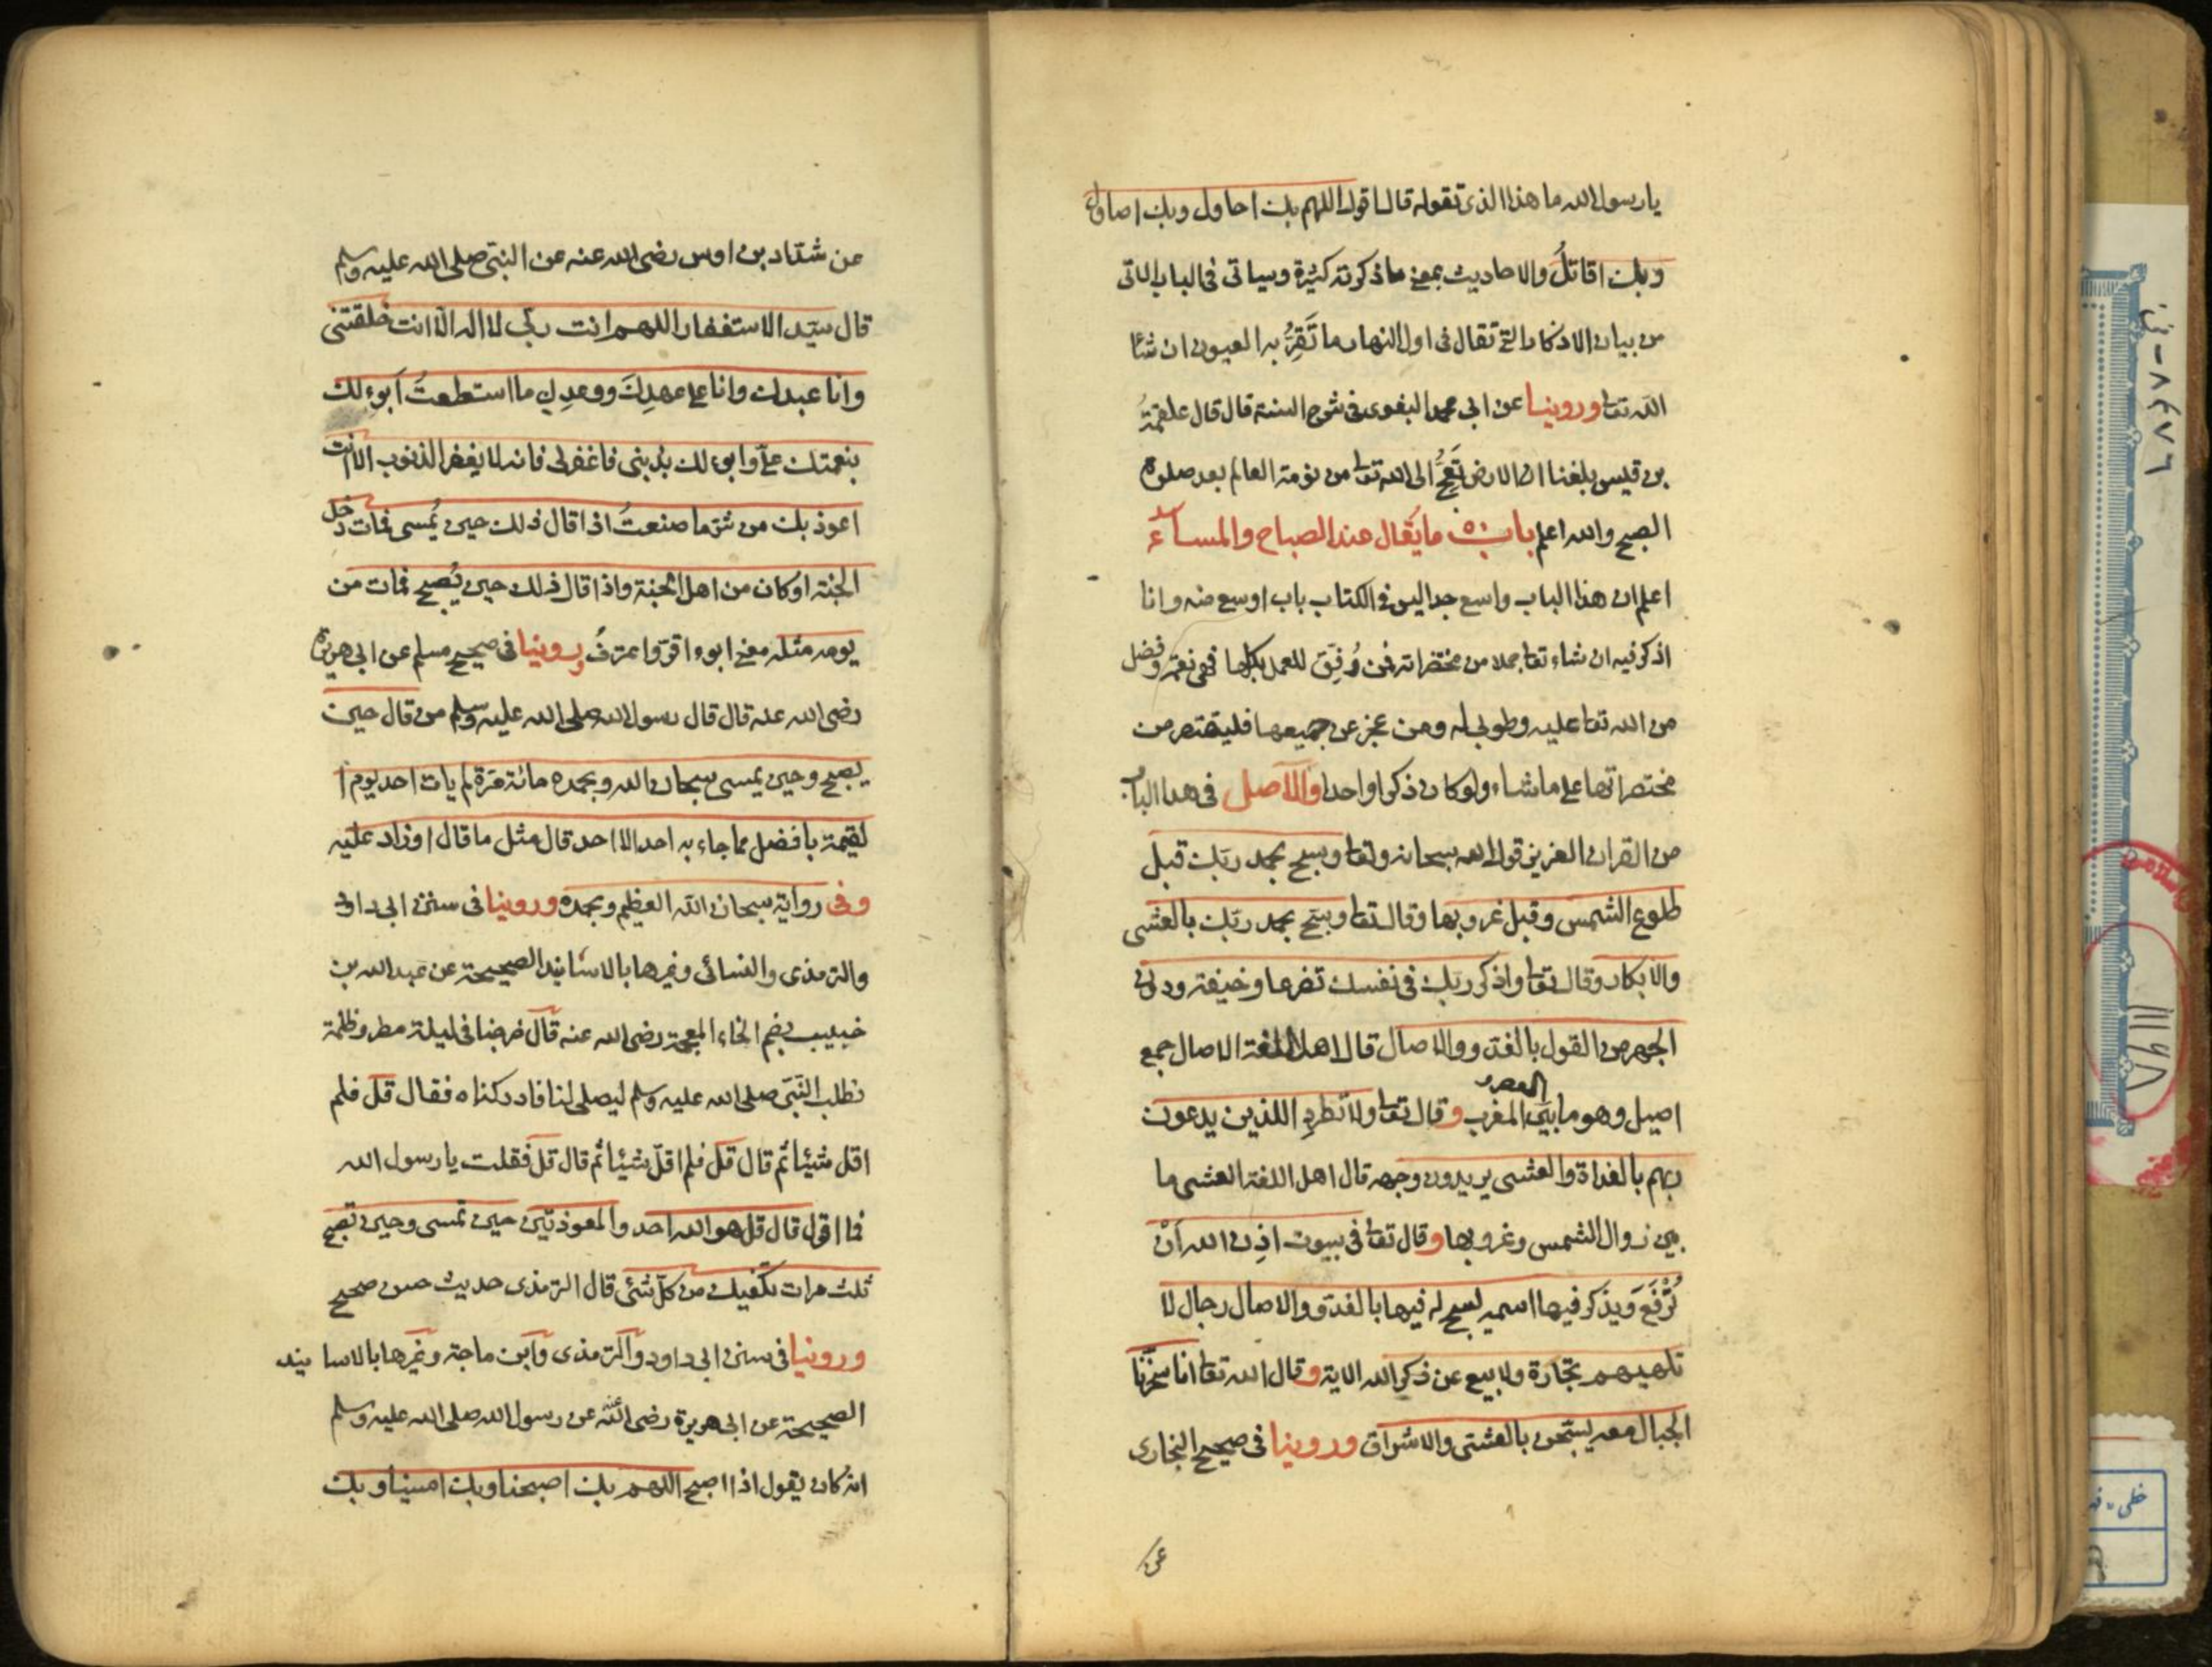 يا رسول الله ما هذا الذى تقوله قال اقول اللهم بك احاول وبك اصاول
وبك اقاتل والاحاديث بمعنى ما ذكرته كثيرة وسياتى فى الباب الاتى
من بيان الاذكار التى تقال فى اول النهار ما تَقِرُّ به العيون ان شا
الله تعا وروينا عن ابى محمد البغوى فى شرح السنة قال قال علقمةُ
بن قيس بلغنا ان الارض تَعِجُّ الى الله تعا من نومة العالم بعد صلوة
الصبح والله اعلم باب ما يُقال عند الصباح والمساء
اعلم ان هذا الباب واسع جدا ليس فى الكتاب باب اوسع منه وانا
اذكر فيه ان شاء تعا جملا من مختصراته فمن وُفِّقَ للعمل بكلها فهى نعمة وفضل
من الله تعا عليه وطوبى له ومن عجز عن جميعها فليقتصر من
مختصراتها على ما شاء ولو كان ذكرا واحدا والاصل فى هذا الباب
من القران العزيز قول الله سبحانه وتعا وسبح بحمد ربك قبل
طلوع الشمس وقبل غروبها وقال تعا وسبح بحمد ربك بالعشى
والابكار وقال تعا واذكر ربك فى نفسك تضرعا وخيفة ودون
الجهر من القول بالغدو والاصال قال اهل اللغة الاصال جمع
اصيل وهو ما بين العصر المغرب وقال تعا ولا تطرد اللذين يدعون
ربهم بالغداة والعشى يريدون وجهه قال اهل اللغة العشى ما
بين زوال الشمس وغروبها وقال تعا فى بيوت اذِن الله اَنْ
تُرْفَعَ وَيذكر فيها اسمه يسبح له فيها بالغدو والاصال رجال لا
تلهيهم تجارة ولا بيع عن ذكر الله الاية وقال الله تعا انا سخّرنا
الجبال معه يسبّحن بالعشىّ والاشراق وروينا فى صحيح البخارى
عن
عن شدّاد بن اوس رضى الله عنه عن النبىّ صلى الله عليه وسلم
قال سيّد الاستغفار اللهم انت ربى لا اله الّا انت خلقتنى
وانا عبدك وانا على عهدِكَ ووعدِك ما استطعتُ اَبوء لك
بنعمتك علىّ وابوء لك بذنبى فاغفر لى فانه لا يغفر الذنوب الا انت
اعوذ بك من شرّ ما صنعتُ اذا قال ذلك حين يُمسى فمات دخل
الجنة او كان من اهل الجنة واذا قال ذلك حين يُصبح فمات من
يومه مثله معنى ابوء اقرّ واعترفُ وروينا فى صحيح مسلم عن ابى هريرة
رضى الله عنه قال قال رسول الله صلى الله عليه وسلم من قال حين
يصبح وحين يمسى سبحان الله وبحمده مائة مَرّة لم يات احد يوم ا
لقيمة بافضل مما جاء به احد الا احد قال مثل ما قال او زاد عليه
وفى رواية سبحان الله العظيم وبحمده وروينا فى سنن ابى داود
والترمذى والنسائى وغيرها بالاسانيد الصحيحة عن عبد الله بن
خبيب بضم الخاء المعجمة رضى الله عنه قال خرجنا فى ليلة مطر وظلمة
نطلب النّبىّ صلى الله عليه وسلم ليصلى لنا فادركناه فقال قل فلم
اقل شيئا ثم قال قل فلم اقل شيئا ثم قال قل فقلت يا رسول الله
ما اقول قال قل هو الله احد والمعوذتين حين تمسى وحين تصبح
ثلث مرات تكفيك من كلّ شئى قال الترمذى حديث حسن صحيح
وروينا فى سنن ابى داود والترمذى وابن ماجة وغيرها بالاسانيد
الصحيحة عن ابى هريرة رضى الله عنه عن رسول الله صلى الله عليه وسلم
انه كان يقول اذا اصبح اللهم بك اصبحنا وبك امسينا وبك